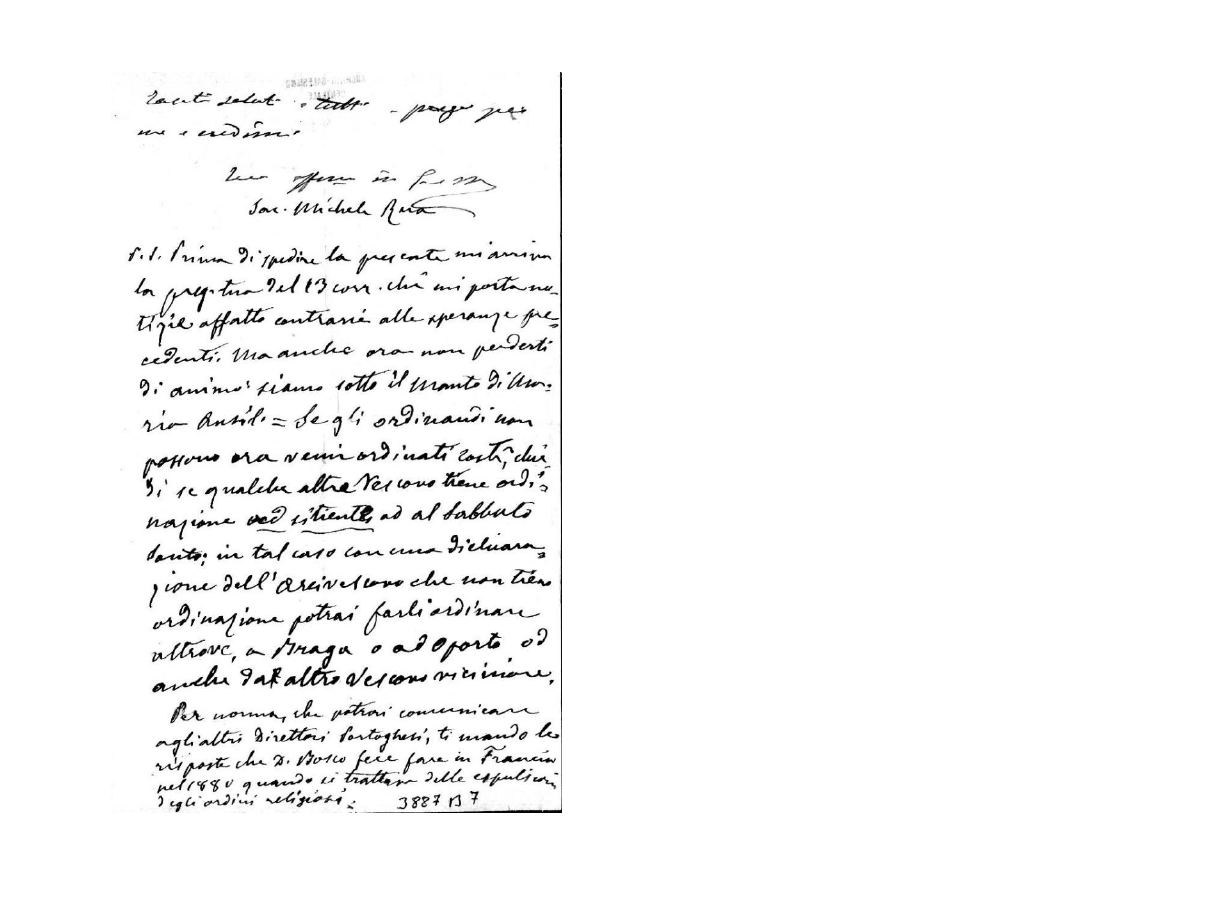 Tanti saluti a tutti - prega per
me e credimi
Tuo affmo in G. e M.
Sac. Michele Rua
P.S. Prima di spedire la presente mi arriva
la preg. tua del 13 corr. che mi porta no-
tizie affatto contrarie alle speranze pre=
cedenti. Ma anche ora non perderti
di animo: siamo sotto il manto di Ma=
ria Ausil. = Se gli ordinandi non
possono ora venir ordinati costì,
di se qualche altro Vescovo tiene ordi=
nazione ad sitientes od al Sabbato
Santo; in tal caso con una dichiara=
zione dell'Arcivescovo che non tiene
ordinazione potrai farli ordinare
altrove, a Braga o ad Oporto od
anche da altro Vescovo viciniore.
Per norma, che potrai comunicare
agli altri Direttori Portoghesi, ti mando le
risposte che D. Bosco fece fare in Francia
nel 1880 quando si trattava delle espulsioni
degli ordini religiosi.
3887 B 7